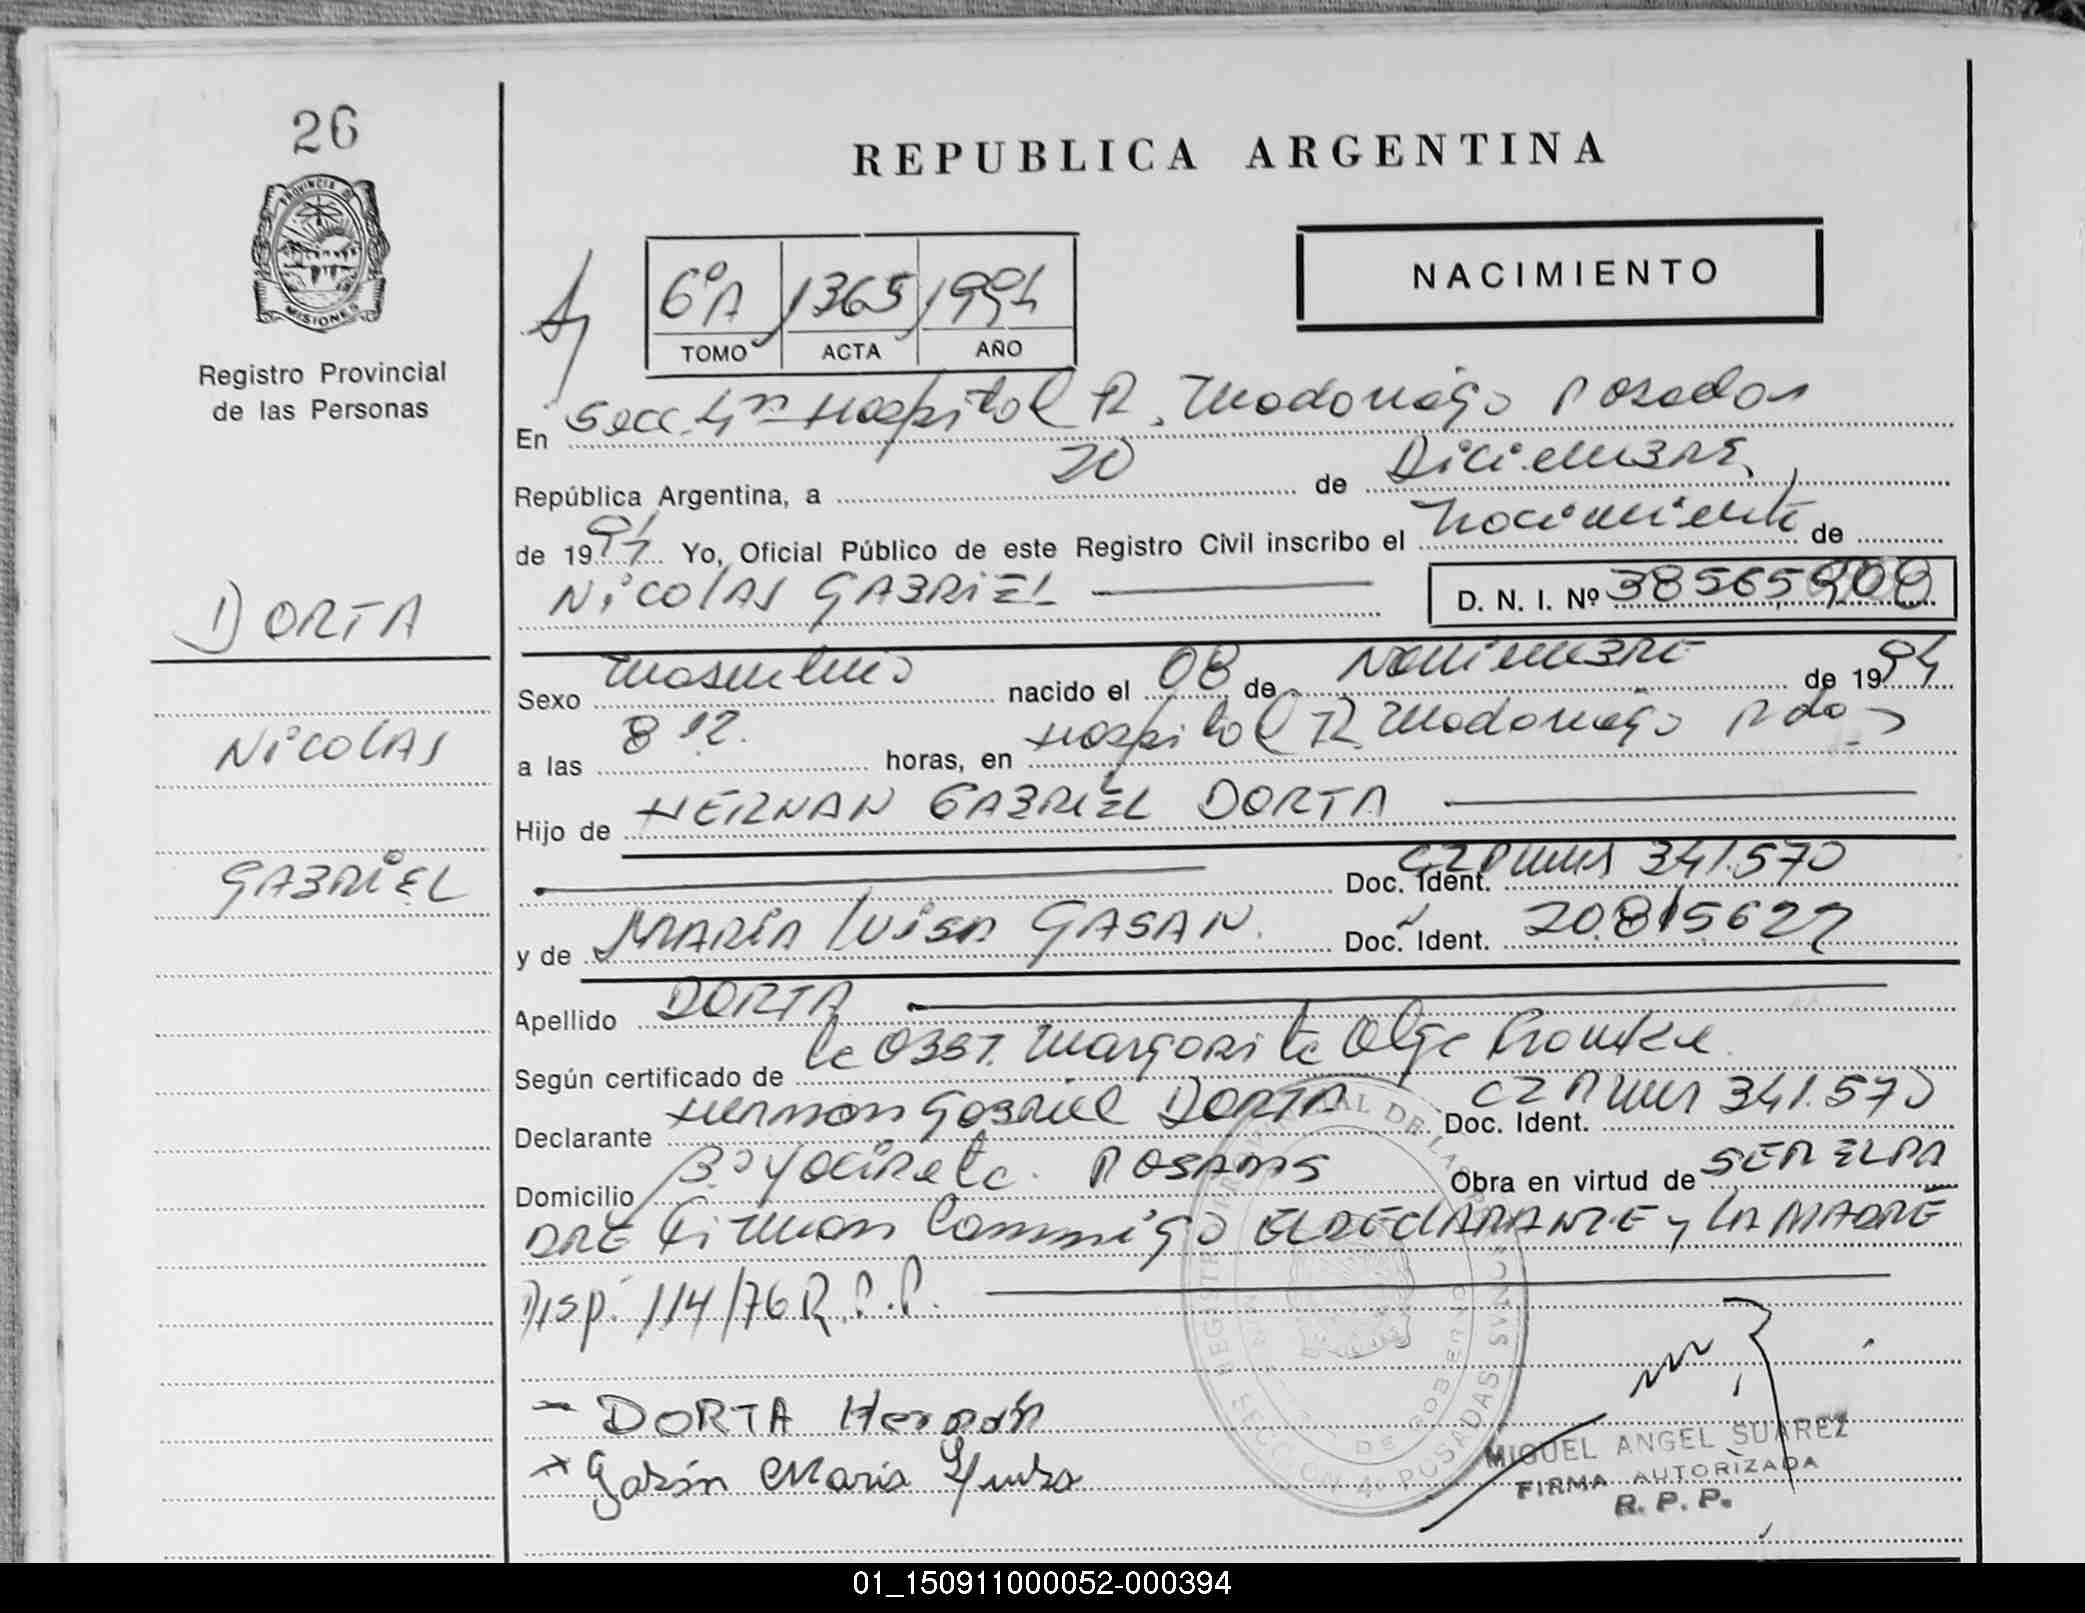 26
PROVINCIA DE
MISIONES
Registro Provincial
de las Personas
DORTA
NICOLAS
GABRIEL
REPUBLICA ARGENTINA
NACIMIENTO
6ºA 1365 1994
TOMO ACTA AÑO
En Secc. 4ta Hospital R. Madariaga Posadas
República Argentina, a 20 de Diciembre
de 1994 Yo, Oficial Público de este Registro Civil inscribo el Nacimiento de
NICOLAS GABRIEL D. N. I. Nº 38565908
Sexo Masculino nacido el 08 de Noviembre de 1994
a las 8 12. horas, en Hospital R. Madariaga Pdas
Hijo de HERNAN GABRIEL DORTA
Doc. Ident. 341.570
y de MARIA LUISA GASAN. Doc. Ident. 20.815627
Apellido DORTA
Según certificado de la OBST. Margarita Olga
Declarante Hernan Gabriel DORTA Doc. Ident. 341.570
Domicilio Bº Yacireta. POSADAS Obra en virtud de SER EL PA
DRE Firman Conmigo EL DECLARANTE y LA MADRE
Disp. 114/76 R.P.P.
- DORTA Hernán
Gasán Maria Luisa
MIGUEL ANGEL SUAREZ
FIRMA AUTORIZADA
R. P. P.
01_150911000052-000394